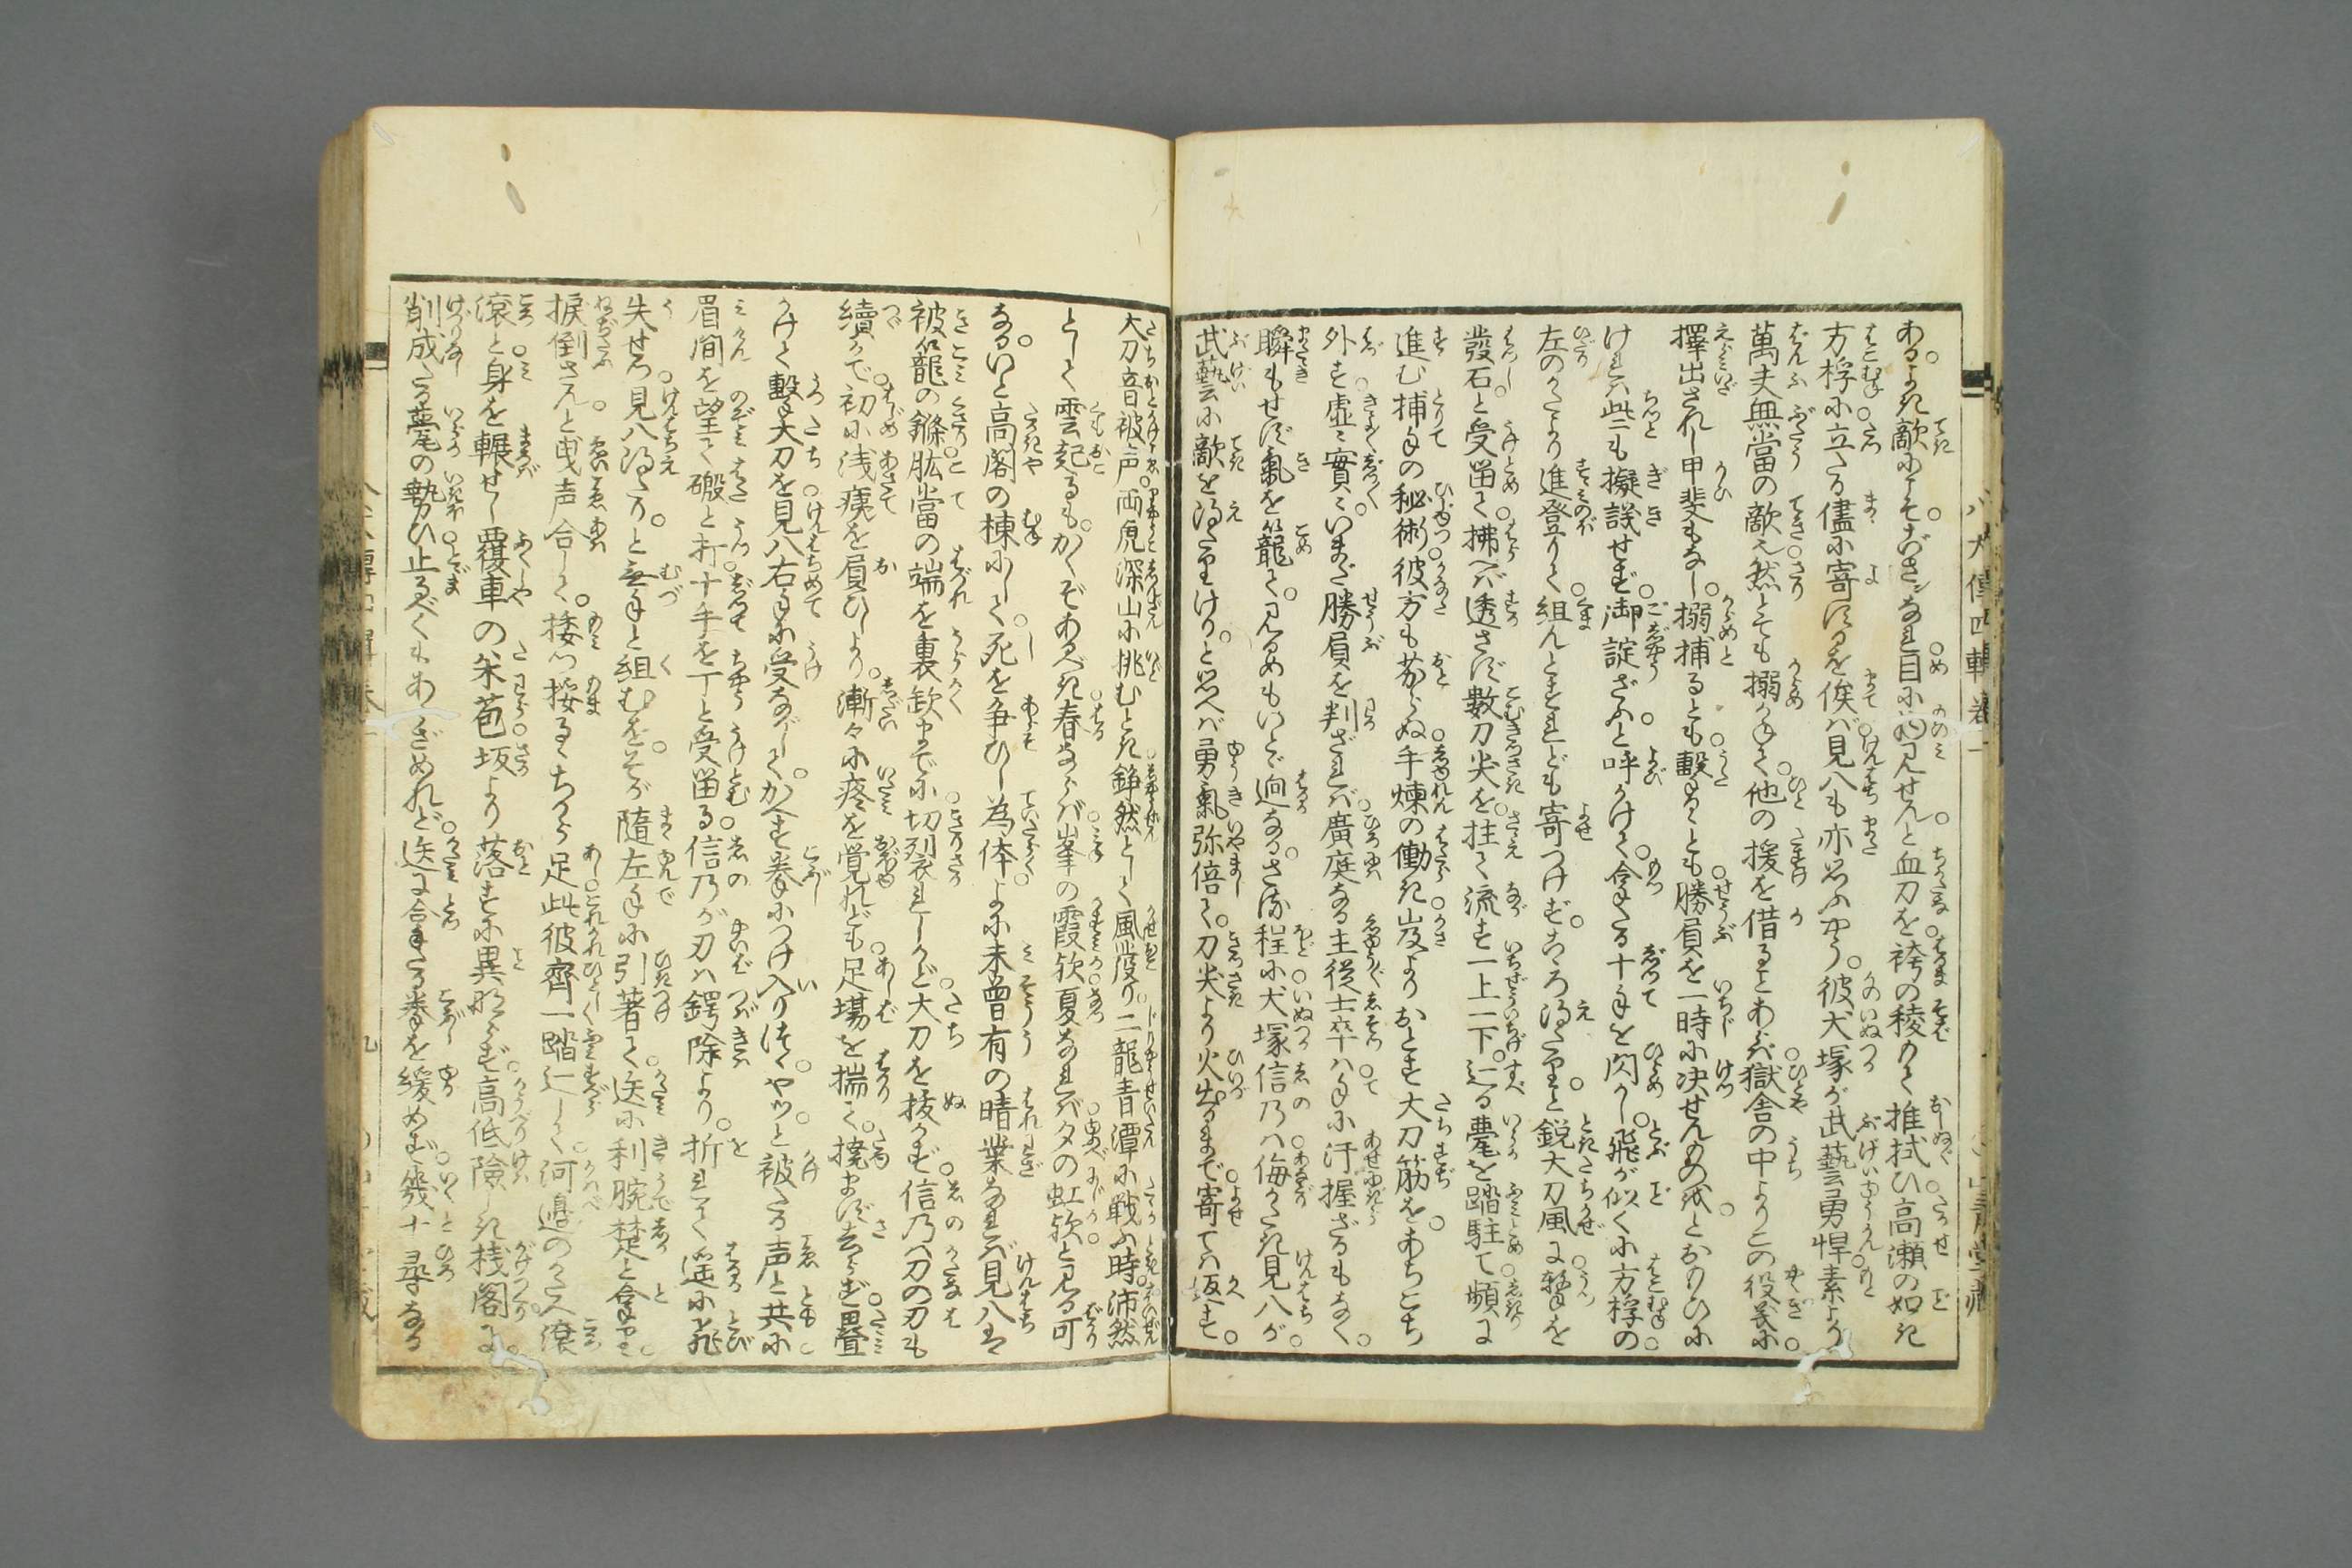 ある。よき敵にこそござンなれ。目に物見せんと血刀を。袴の稜もて推拭ひ。高瀬の如き
方桴に立たる儘に寄するを俟ば。見八も亦思ふやう。彼犬塚が武藝勇悍。素より
萬夫無當の敵也。然とても搦かねて。他の援を借ることあらば。獄舎の中よりこの役義に
擇出されし甲斐もなし。搦捕るとも撃るゝとも。勝負を一時に決せんものをとおもひに
ければ些も擬議せず。御諚ざふと呼かけて。拿たる十手を閃かし。飛が似くに方桴の
左のかたより進登りて。組んとすれども寄つけず。こゝろ得たりと鋭大刀風に。撃を
發石と受留て。拂へば透さず數刀尖を。拄て流す一上一下。辷る甍を踏駐て。頻に
進む捕手の秘術。彼方も劣らぬ手煉の働き。岌よりおとす大刀筋を。あちこち
外す虚々實々。いまだ勝負を判ざれば。廣庭なる主從士卒は。手に汗握ざるもなく。
瞬もせず氣を籠て。見るめもいとゞ迥なる。さる程に犬塚信乃は。侮かたき見八が
武藝に敵を得てけり。と思へば勇氣弥倍て。刀尖より火出るまで。寄ては返す。
大刀音被声。両虎深山に挑むとき。錚然として風發り。二龍青潭に戰ふ時。沛然
として雲起るも。かくぞあるべき。春ならば峯の霞歟。夏なれば夕の虹歟と見る可
なる。いと高閣の棟にして。死を争ひし為体。よに未曽有の晴業なれば。見八は
被籠の鏁肱當の端を裏歓までに切裂れしかど。大刀を抜かず。信乃は刀の刃も
續かで。初に浅痍を負ひしより。漸々に疼を覚れども。足塲を揣て。撓まず去らず。疊
かけて撃大刀を。見八右手に受ながして。かへす拳につけ入りつゝ。ヤッ。と被たる声と共に。
眉間を望て礑と打十手を丁と受留る。信乃が刃は鍔除より。折れて遥に飛
失せつ。見八得たり。と無手と組むを。そが隨左手に引著て。迭に利腕楚と拿り。
捩倒さんと曳声合して。揉つ揉るゝちから足。此彼齊一踏辷して。河邉のかたへ滾
滾と身を輾せし。覆車の米苞。坂より落すに異ならず。高低險しき桟閣に。
削成たる甍の勢ひ。止るべくもあらざめれど。迭に拿たる拳を緩めず。幾十尋なる